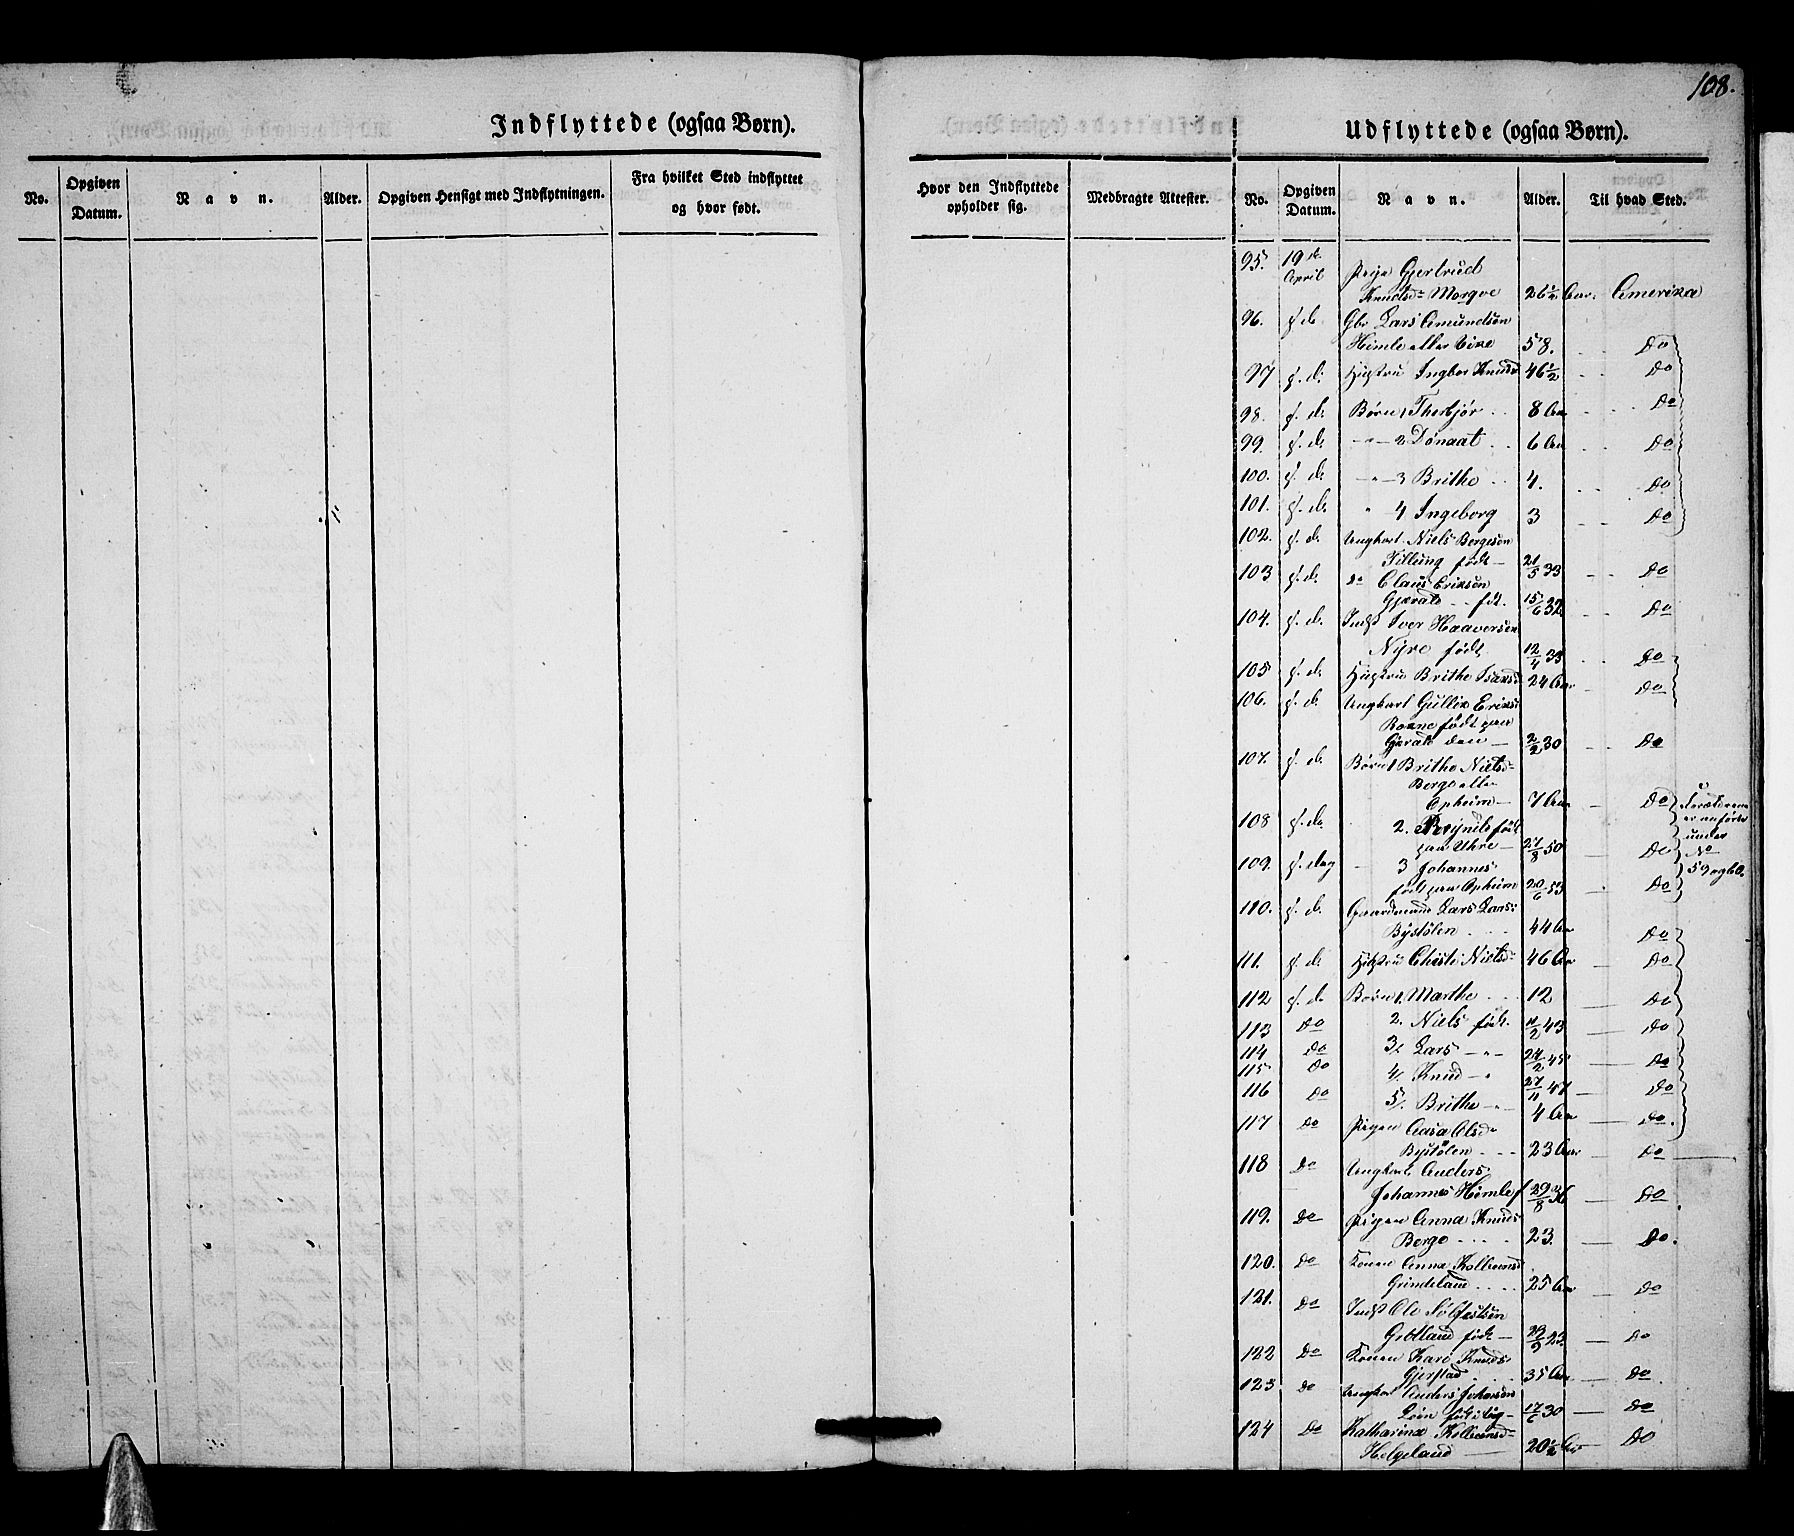 108.
Indflyttede (ogsaa Børn).
No.
Opgiven Datum.
Navn.
Alder.
Opgiven Hensigt med Indflytningen.
Fra hvilket Sted indflyttet og hvor født.
Hvor den Indflyttede opholder sig.
Medbragte Attester.
Udflyttede (ogsaa Børn).
No.
Opgiven Datum.
Navn.
Alder.
Til hvad Sted.
95. 19de April Pige Gjertrud
Knudsd: Mørqve 26½ Aar. Amerika
96. s. d. Gbr Lars Amundsen
Himle eller 58. Do
97 s. d. Hustru Ingbor Knudsd 46½ Do
98. s. d. Børn 1 Thorbjør 8 Aar Do
99. s. d. 2 Dønaat 6 Aar Do
100. s. d. 3 Brithe 4. Do
101. s. d. 4 Ingeborg 3 Do
102. s. d. Ungkarl. Niels Bergesen
Tillung født 21/5 33 Do
103 s. d. do Claus Eriksen
Gjerald fdt. 15/6 32 Do
104. s. d. Indst Iver Haaversen
Nyre født 12/4 33 Do
105 s. d. Hustru Brithe 24 Aar Do
106. s. d. Ungkarl Gullik Eriks:
født paa
den 2/2 30 Do
107. s. d. Børn 1 Brithe Nielsd:
Berge eller
Opheim 7 Aar Do
Forældrene er anførte under No 59 og 60.
108 s. d. 2. født
paa Uhre 27/8 50 Do
109. s. dag 3 Johannes
født paa Opheim 20/6 53 Do
110. s. d. Gaardmand Lars Lars:
Bystølen 44 Aar Do
111. s. d. Hustru Christi Nielsd: 46 Aar Do
112 s. d. Børn 1. Marthe 12 Do
113 Do 2. Niels født. 11/2 43 Do
114 Do 3/ Lars 24/2 45 Do
115 Do 4/ Knud 27/11 47 Do
116 Do 5/. Brithe 4 Aar Do.
117 Do Pigen Aasa Olsd
Bystølen 23 Aar Do
118 Do Ungkarl Anders
Johannes Himle f 29/8 36 Do
119. Do Pigen Anna Knuds
Berge 23. Do.
120. Do Konen Anna Kolbeinsd
Grindeland 25 Aar Do
121. Do Indst Ole Sølfestsen
født 29/9 23 Do
122 Do Konen Kari Knuds
Gjerstad 35 Aar Do
123 Do Ungkarl Anders Johansen
Løen født 17/6 30 Do
124 Do Katharina Kolbeinsd:
Helgeland 20½ Aar Do